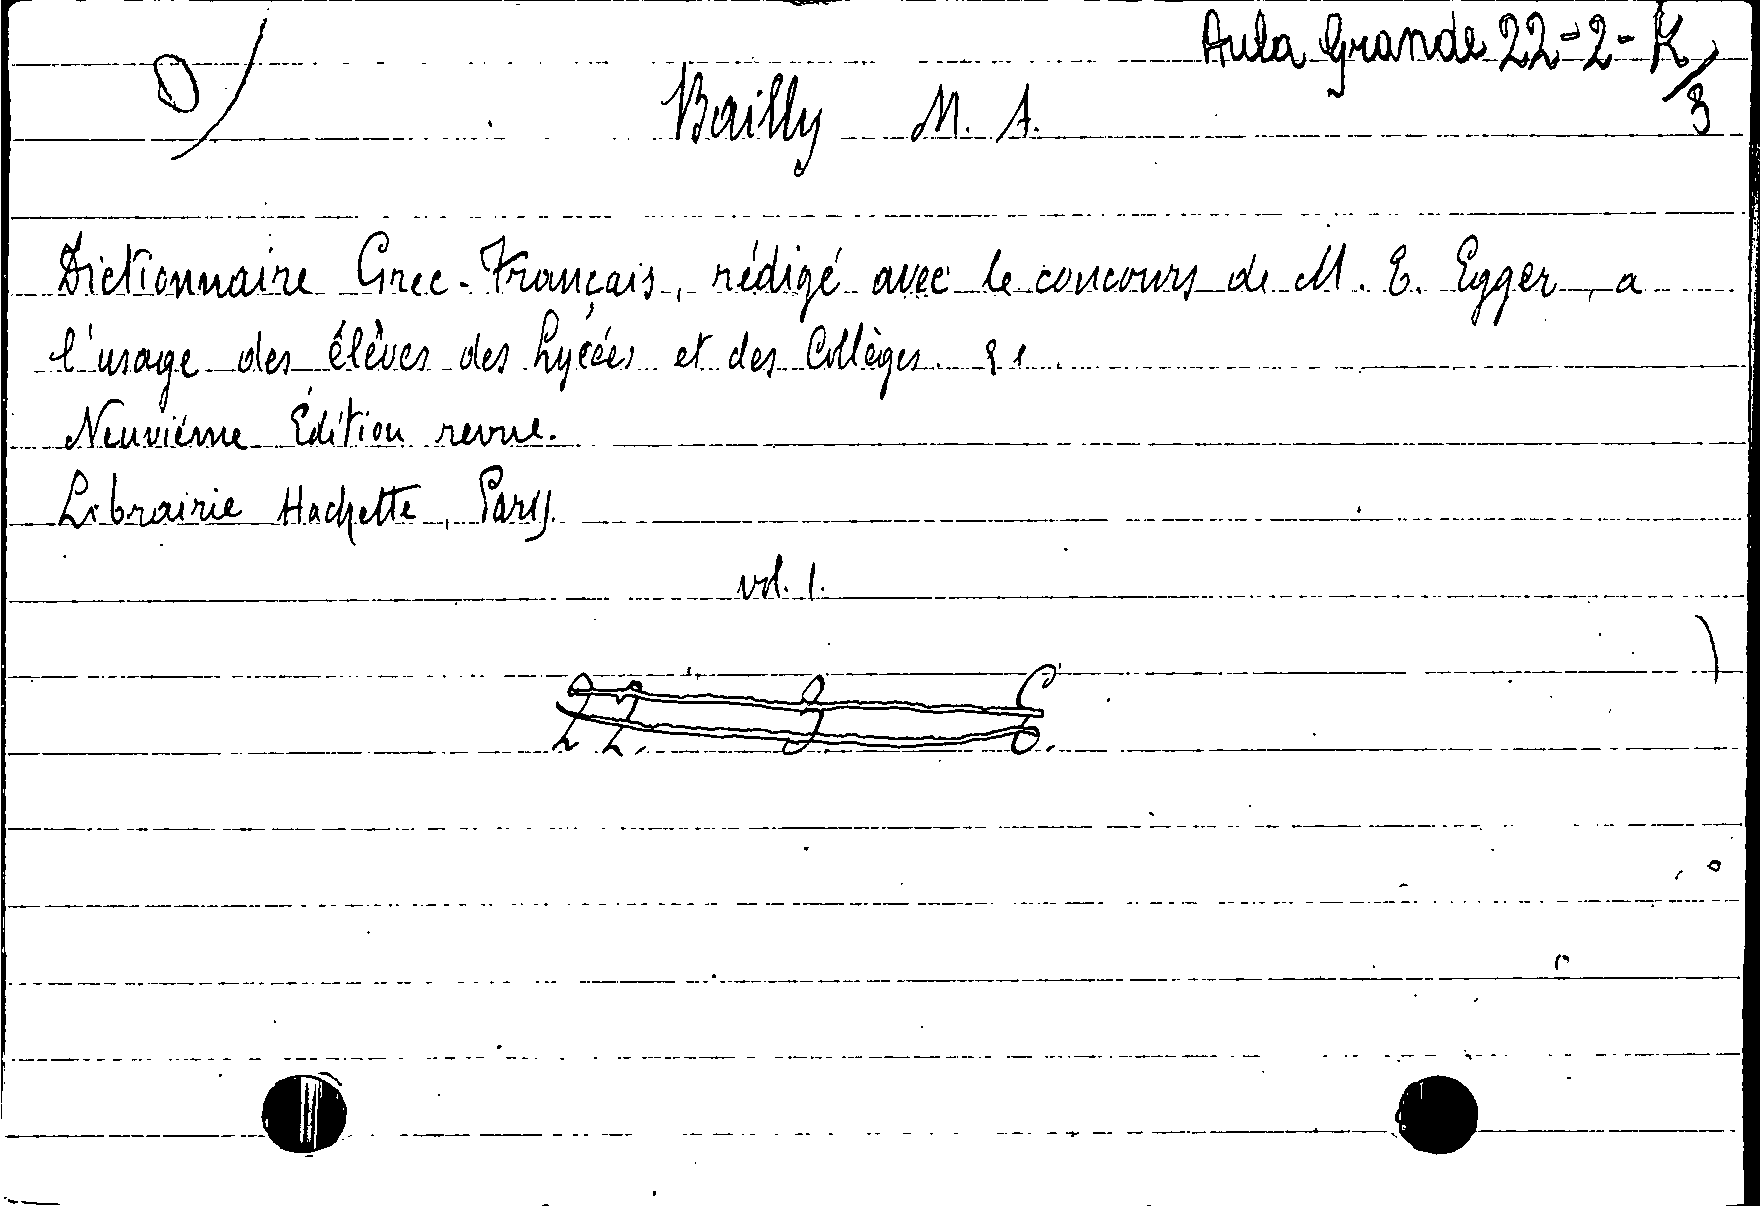 Aula Grande 22-2-K/3
Bailly M. A.
Dictionnaire Grec-Français, rédigé avec le concours de M. E. Egger, a
l'usage des élèves des Lycées et des Collèges.
Neuviéme Édition revue.
Librairie Hachette, Paris.
vol. 1.